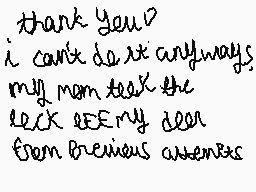 thank you♡
i can't do it anyways,
my mom took the
lock off my door
from previous attempts